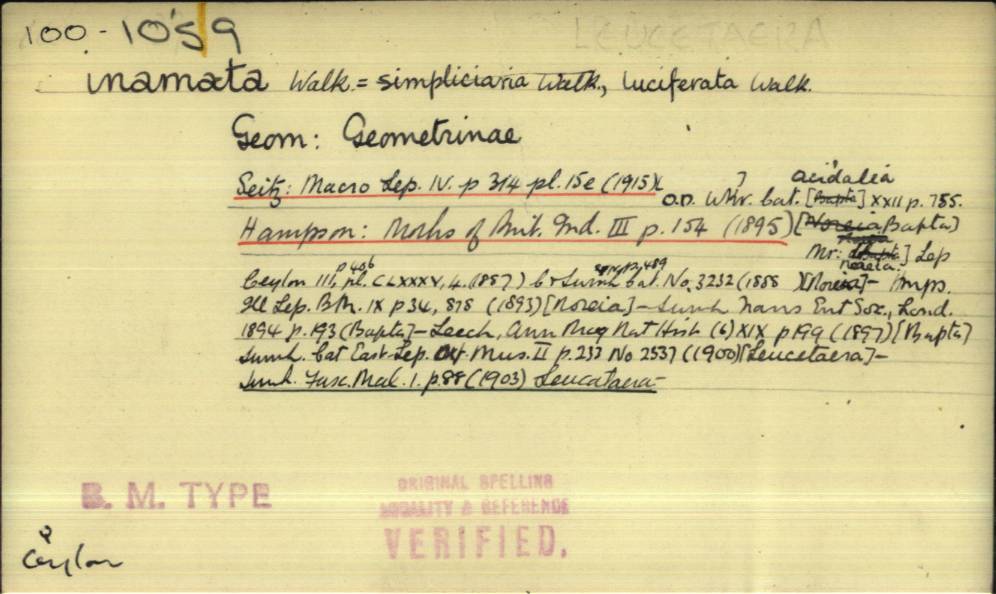 100-1059
LEUCETAERA
inamata Walk. = simpliciaria Walk., luciferata Walk.
Geom: Geometrinae
Seitz: Macro Lep. IV. p 314 pl. 15e (1915)
acidalia
O.D. Wkr. Cat. [Bapta] XXII p. 755.
Hampson: Moths of Brit. Ind. III p. 154 (1895) [Noreia Bapta]
Mr: [Bapta] Lep
Noreia
p 406
Ceylon III, pl. CLXXXV, 4. (1887) C & Swinh Cat. No, 3232 (1888) [Noreia] - Hmps.
Ill Lep. B.M. IX p 34, 878 (1893) [Noreia] - Swinh Trans Ent Soc., Lond.
1894 p. 193 (Bapta] - Leech, Ann Mag Nat Hist (6) XIX p 199 (1897) [Bapta]
Swinh. Cat East. Lep. Oxf. Mus. II p. 233 No 2537 (1900) [Leucetaera] -
Swinh. Fasc. Mal. 1. p. 88 (1903) Leucetaera -
B. M. TYPE
ORIGINAL SPELLING
LOCALITY & REFERENCE
VERIFIED.
♀
Ceylon